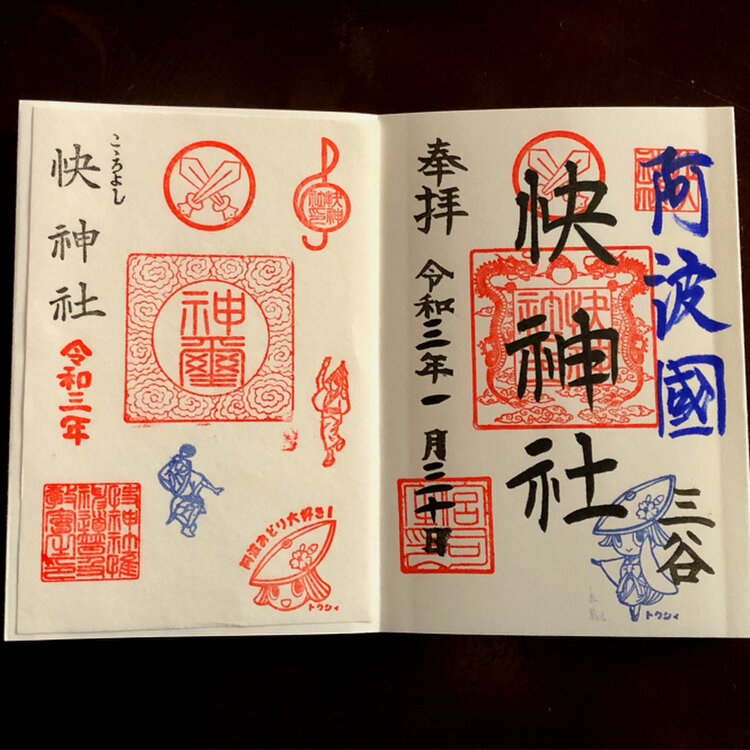 こゝろよし
快神社
令和三年
神璽
快神社印
阿波おどり大好き！
トクシィ
阿波國
三谷
快神社
奉拝
令和三年一月三十日
トクシィ